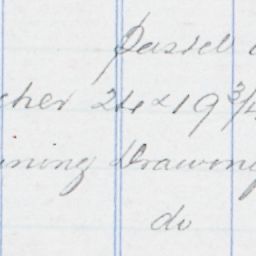 Pastel
cher 24 x 19 3/4
ining Drawing
do